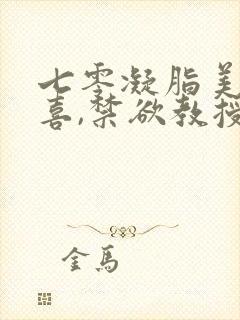 七零凝脂美
喜,禁欲教授
金马